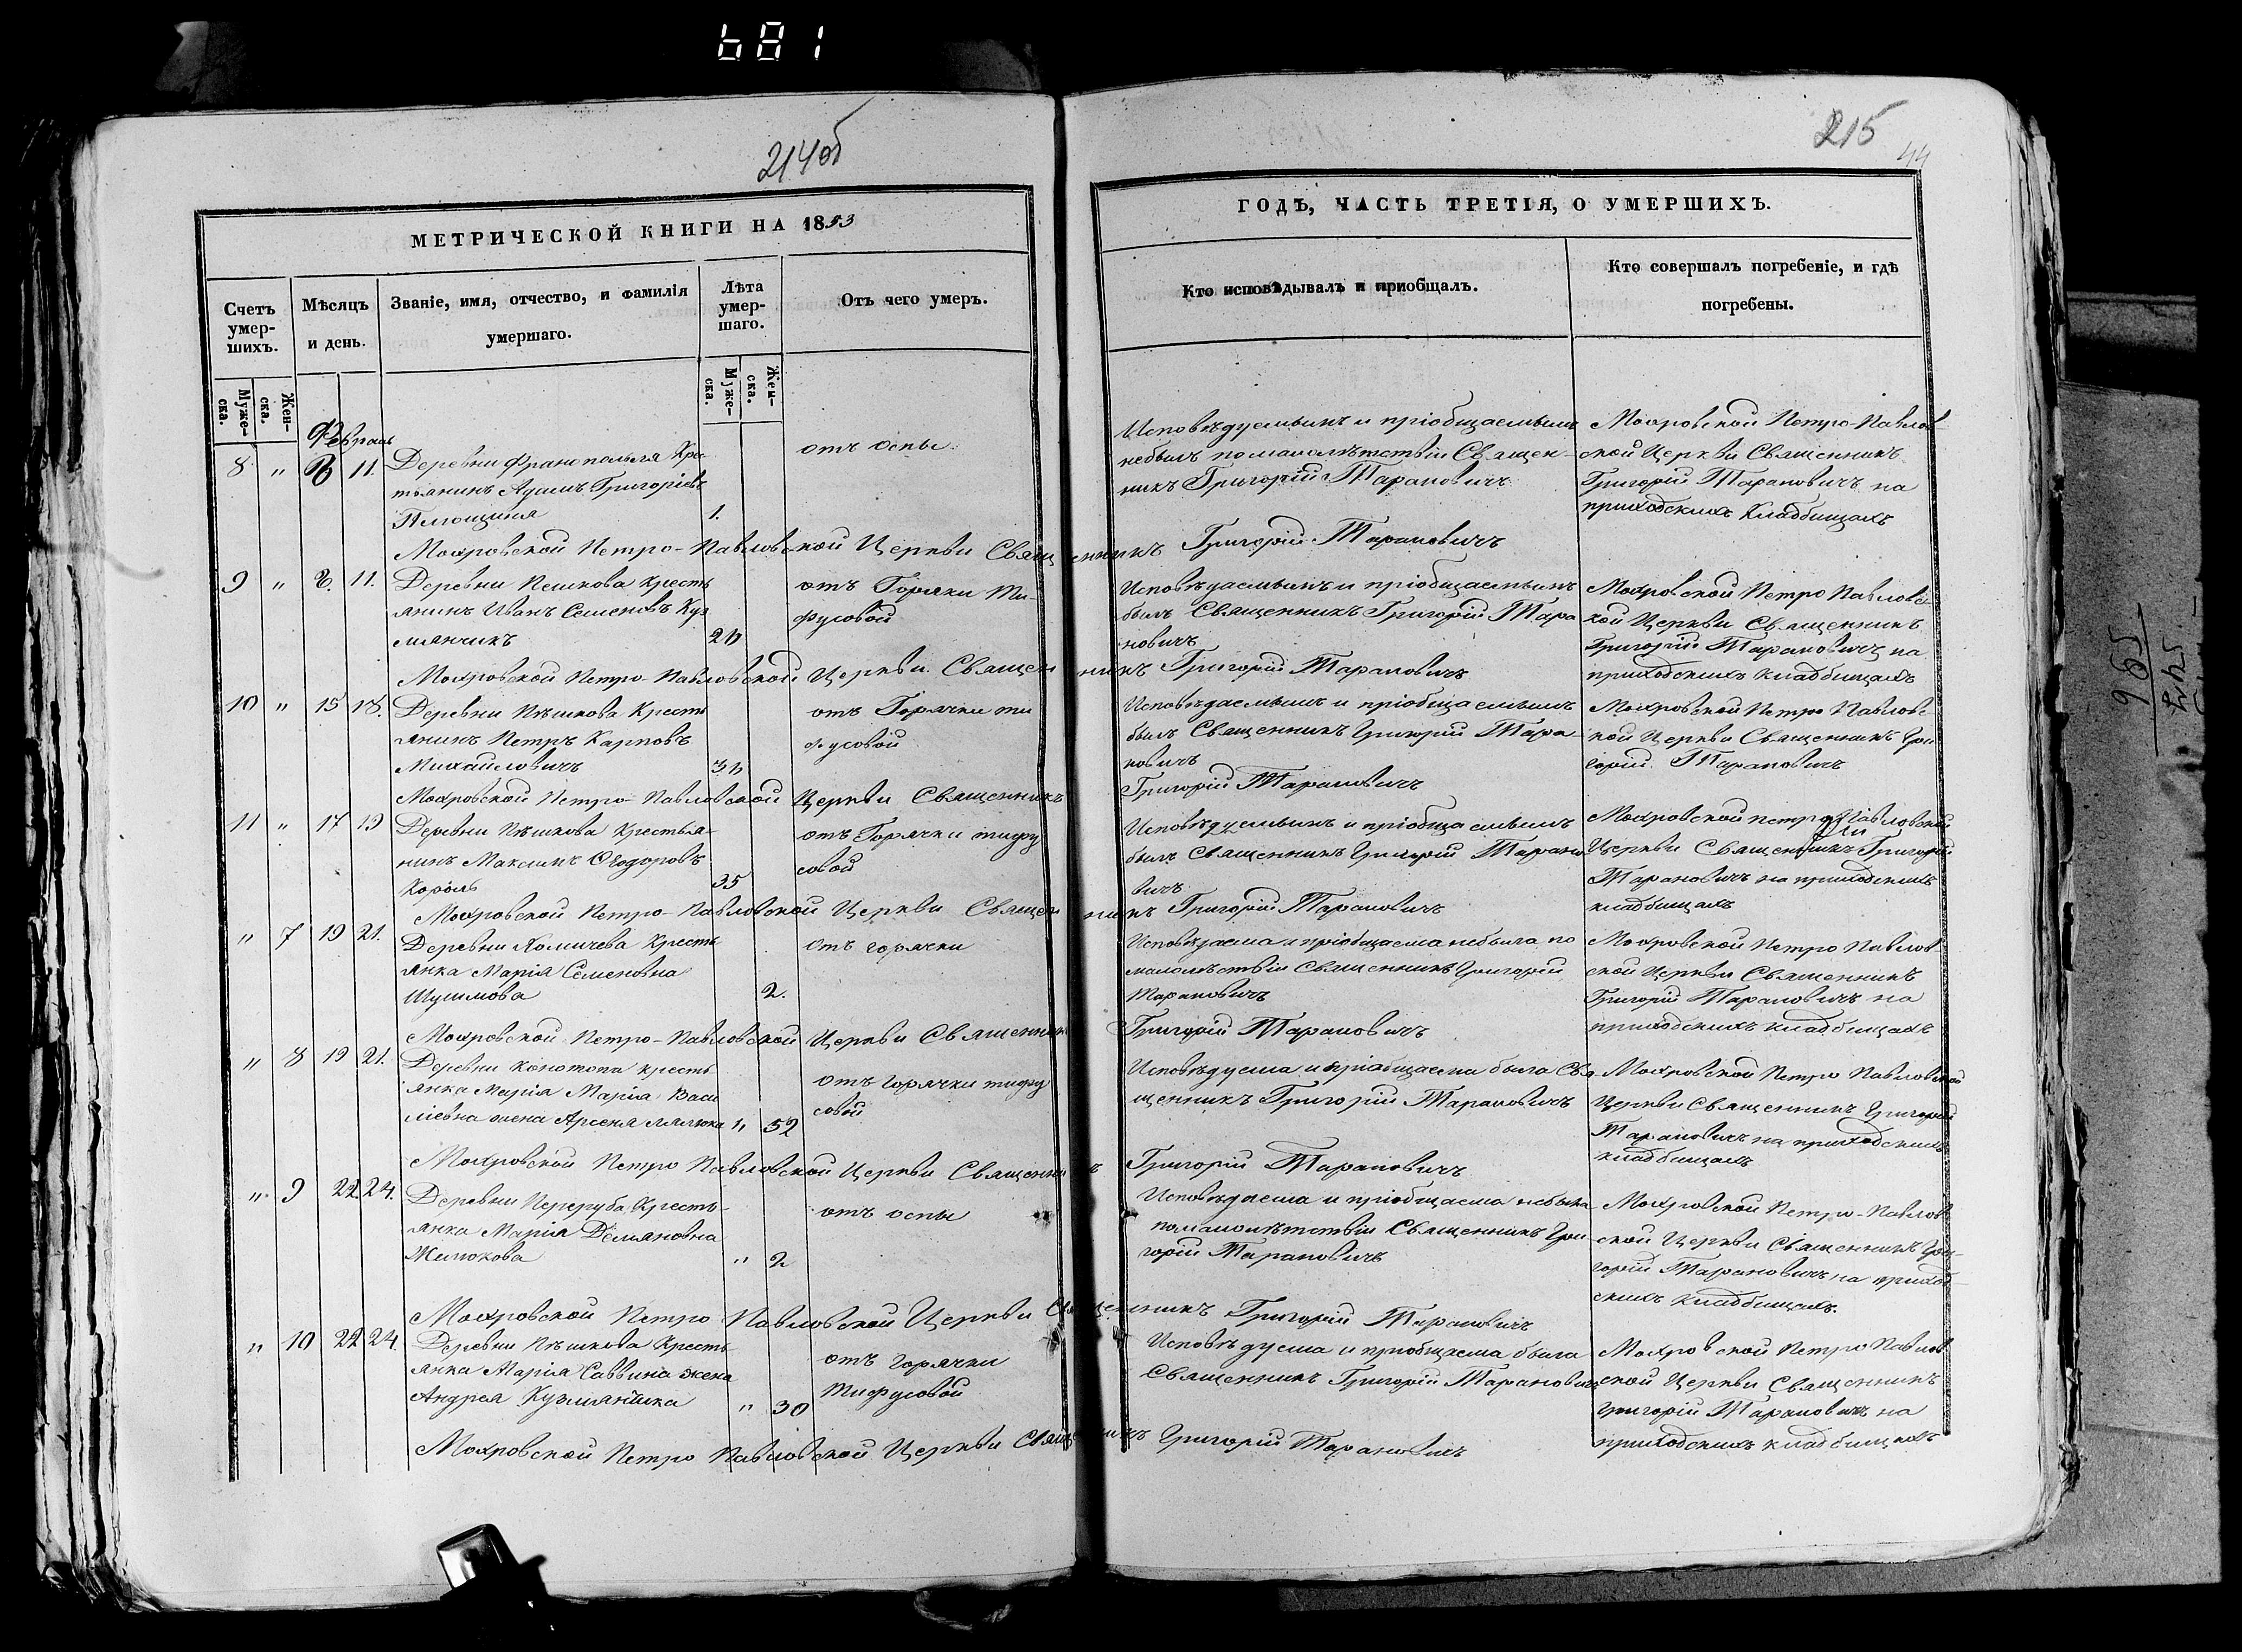 681
214об
215
44
МЕТРИЧЕСКОЙ КНИГИ НА 1853
ГОДЪ, ЧАСТЬ ТРЕТІЯ, О УМЕРШИХЪ.
Счетъ умер-шихъ.
Мѣсяцъ и день.
Званіе, имя, отчество, и фамилія
умершаго.
Лѣта умер-шаго.
Отъ чего умеръ.
Кто исповѣдывалъ и приобщалъ.
Кто совершалъ погребеніе, и гдѣ
погребены.
Муже-ска.
Жен-ска.
Муже-ска.
Жен-ска.
Февраль
8 " 11.
Деревни Франополья Кре
тьянинъ Адамъ Григоріевъ
1.
отъ оспы
Исповѣдуемымъ и пріобщаемымъ
небылъ по малолѣтствіи Священ-
никъ Григорій Тарановичъ
Мохровской Петро-Павлов
ской Церкви Священникъ
Григорій Тарановичъ на
приходскихъ Кладбищахъ
Мохровской Петро-Павловской Церкви Священникъ Григорій Тарановичъ
9 " 11.
Деревни Пешкова Кресть
янинъ Иванъ Семеновъ Куз
мянчикъ
отъ Горячки Ти-
фусовой
Исповѣдаемымъ и пріобщаемымъ
былъ Священникъ Григорій Тара
новичъ
Мохровской Петро Павловс-
кой Церкви Священникъ
Григорій Тарановичъ на
приходскихъ кладбищахъ
Мохровской Петро-Павловской Церкви Священникъ Григорій Тарановичъ
10 " 15 18.
Деревни Пѣшкова Кресть
янинъ Петръ Карповъ
Михайловичъ
отъ Горячки ти
фусовой
Исповѣдаемымъ и пріобщаемымъ
былъ Священникъ Григорій Тара-
новичъ
Мохровской Петро Павловс-
кой Церкви Священникъ Гри
горій Тарановичъ
Мохровской Петро-Павловской Церкви Священникъ Григорій Тарановичъ
11 " 17 19
Деревни Пѣшкова Крестья-
нинъ Максимъ Ѳеодоровъ
Король
35
отъ Горячки тифу
совой
Исповѣдуемымъ и пріобщаемымъ
былъ Священникъ Григорій Тарано
вичъ
Мохровской петро Павловской
Церкви Священникъ Григорій
Тарановичъ на приходскихъ
кладбищахъ
Мохровской Петро-Павловской Церкви Священникъ Григорій Тарановичъ
" 7 19 21.
Деревни Хомичева Кресть
янка Марія Семеновна
2.
отъ горячки
Исповѣдаема и пріобщаема небыла по
малолѣтствіи Священникъ Григорій
Тарановичъ
Мохровской Петро Павлов-
ской Церкви Священникъ
Григорій Тарановичъ на
приходскихъ кладбищахъ
Мохровской Петро-Павловской Церкви Священникъ Григорій Тарановичъ
" 8 19 21.
Деревни Конотопа кресть
янка Марія Марія Васи
ліевна жена Арсенія
" 52
отъ горячки тифу
совой
Исповѣдуема и пріобщаема была Свя-
щенникъ Григорій Тарановичъ
Мохровской Петро Павловской
Церкви Священникъ Григорій
Тарановичъ на приходскихъ
кладбищахъ
Мохровской Петро Павловской Церкви Священникъ Григорій Тарановичъ
" 9 22 24.
Деревни Переруба Кресть-
янка Марія Демяновна
Жилюкова
" 2
отъ оспы
Исповѣдаема и пріобщаема небыла
по малолѣтствіи Священникъ Гри
горій Тарановичъ
Мохровской Петро-Павлов
ской Церкви Священникъ Гри-
горій Тарановичъ на приход-
скихъ кладбищахъ.
Мохровской Петро Павловской Церкви Священникъ Григорій Тарановичъ
" 10 22 24.
Деревни Пѣшкова Кресть
янка Марія Саввина жена
Андрея Кузмянчика
" 30
отъ горячки
Тифусовой
Исповѣдуема и приобщаема была
Священникъ Григорій Тарановичъ
Мохровской Петро Павлов
ской Церкви Священникъ
Григорій Тарановичъ на
приходскихъ кладбищахъ
Мохровской Петро Павловской Церкви Священникъ Григорій Тарановичъ
965